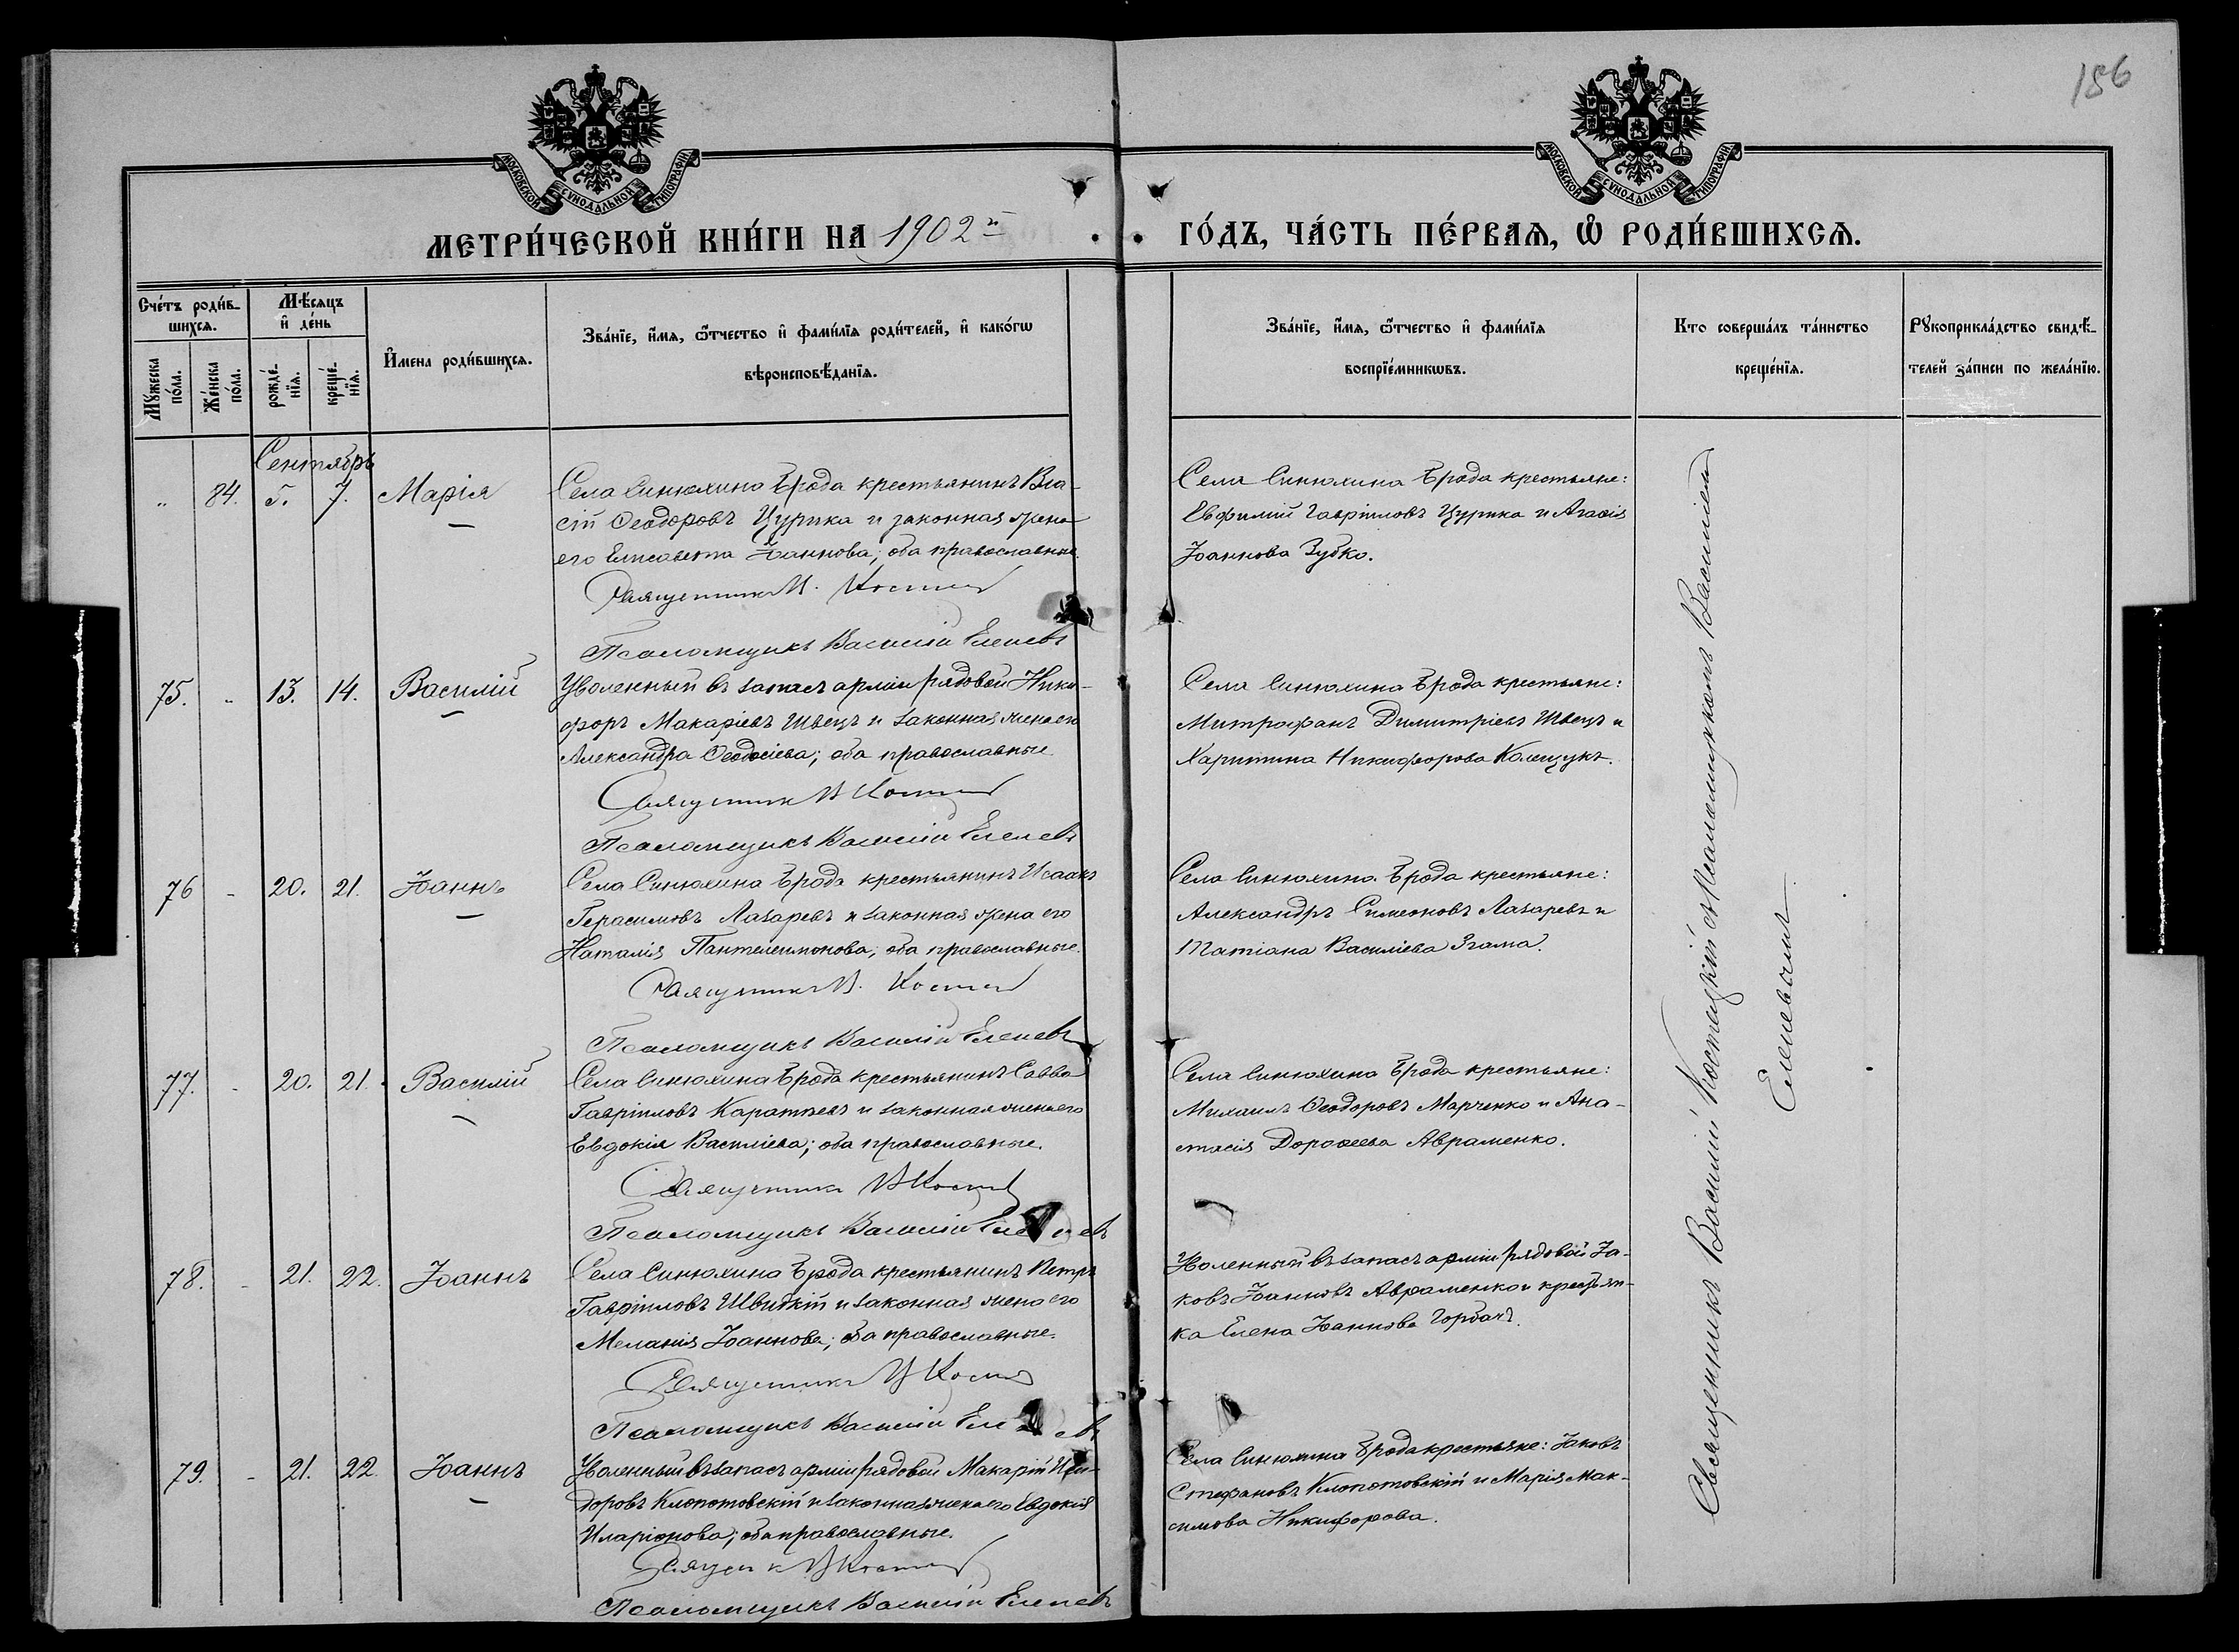 186
МОСКОВСКОЙ СѴНОДАЛЬНОЙ ТИПОГРАФІИ
МОСКОВСКОЙ СѴНОДАЛЬНОЙ ТИПОГРАФІИ
МЕТРИ́ЧЕСКОЙ КНИ́ГИ НА 1902й ГО́ДЪ, ЧА́СТЬ ПЕ́РВАѦ, Ѽ РОДИ́ВШИХСѦ.
Сче́тъ роди́в-
шихсѧ.
Мꙋ́жеска
по́ла.
Же́нска
по́ла.
Мѣ́сѧцъ
и҆ де́нь
рожде́-
нїѧ.
креще́-
нїѧ.
И҆мена роди́вшихсѧ.
Зва́нїе, и҆́мѧ, ѻ҆́тчество и҆ фами́лїѧ роди́телей, и҆ како́гѡ
вѣроисповѣ́данїѧ.
Зва́нїе, и҆́мѧ, ѻ҆́тчество и҆ фами́лїѧ
воспрїе́мникѡвъ.
Кто соверша́лъ та́инство
креще́нїѧ.
Рꙋкоприкла́дство свидѣ́-
телей за́писи по жела́нїю.
Сентябрь
" 84. 5. 7. Марія
Села Синюхина Брода крестьянинъ Вла-
сій Ѳеодоровъ Цурпка и законная жена
его Елисавета Іоаннова; оба православные.
Священникъ В. Кост
Псаломщикъ Василій Еленевъ
Села Синюхина Брода крестьяне:
Евфимій Гавріиловъ Цурпка и Агаѳія
Іоаннова Зубко.
75. " 13. 14. Василій
Уволенный въ запасъ арміи рядовой Ники-
форъ Макаріевъ Швецъ и законная жена его
Александра Ѳеодосіева; оба православные
Священникъ В Кост
Псаломщикъ Василій Еленевъ
Села Синюхина Брода крестьяне:
Митрофанъ Димитріевъ Швецъ и
Харитина Никифорова Колещукъ.
76 - 20. 21. Іоаннъ
Села Синюхина Брода крестьянинъ Исаакъ
Герасимовъ Лазаревъ и законная жена его
Наталія Пантелеимонова; оба православные.
Священникъ В. Кост
Псаломщикъ Василій Еленевъ
Села Синюхина Брода крестьяне:
Александръ Симеоновъ Лазаревъ и
Татіана Василіева Згама.
77. - 20. 21. Василій
Села Синюхина Брода крестьянинъ Савва
Гавріиловъ Каратѣевъ и законная жена его
Евдокія Василіева; оба православные.
Священникъ В Кост
Псаломщикъ Василій Еленевъ
Села Синюхина Брода крестьяне:
Михаилъ Ѳеодоровъ Марченко и Ана-
стасія Дороѳеева Авраменко.
78. - 21. 22. Іоаннъ
Села Синюхина Брода крестьянинъ Петръ
Гавріиловъ Швыткій и законная жена его
Меланія Іоаннова; оба православные.
Священникъ В Кост
Псаломщикъ Василій Еленевъ
Уволенный въ запасъ арміи рядовой Іа-
ковъ Іоанновъ Авраменко и крестьян-
ка Елена Іоаннова Горбачъ.
79. - 21. 22. Іоаннъ
Уволенный въ запасъ арміи рядовой Макарій Иси-
доровъ Клопотовскій и законная жена его Евдокія
Иларіонова; оба православные.
В Кост
Псаломщикъ Василій Еленевъ
Села Синюхина Брода крестьяне: Іаковъ
Стефановъ Клопотовскій и Марія Мак-
симова Никифорова.
Священникъ Василій Костецкій съ Псаломщикомъ Василіемъ
Еленевымъ